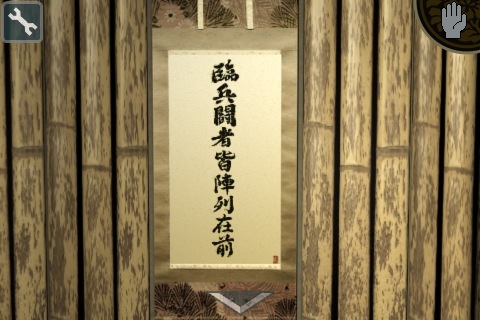 臨兵闘者皆陣列在前